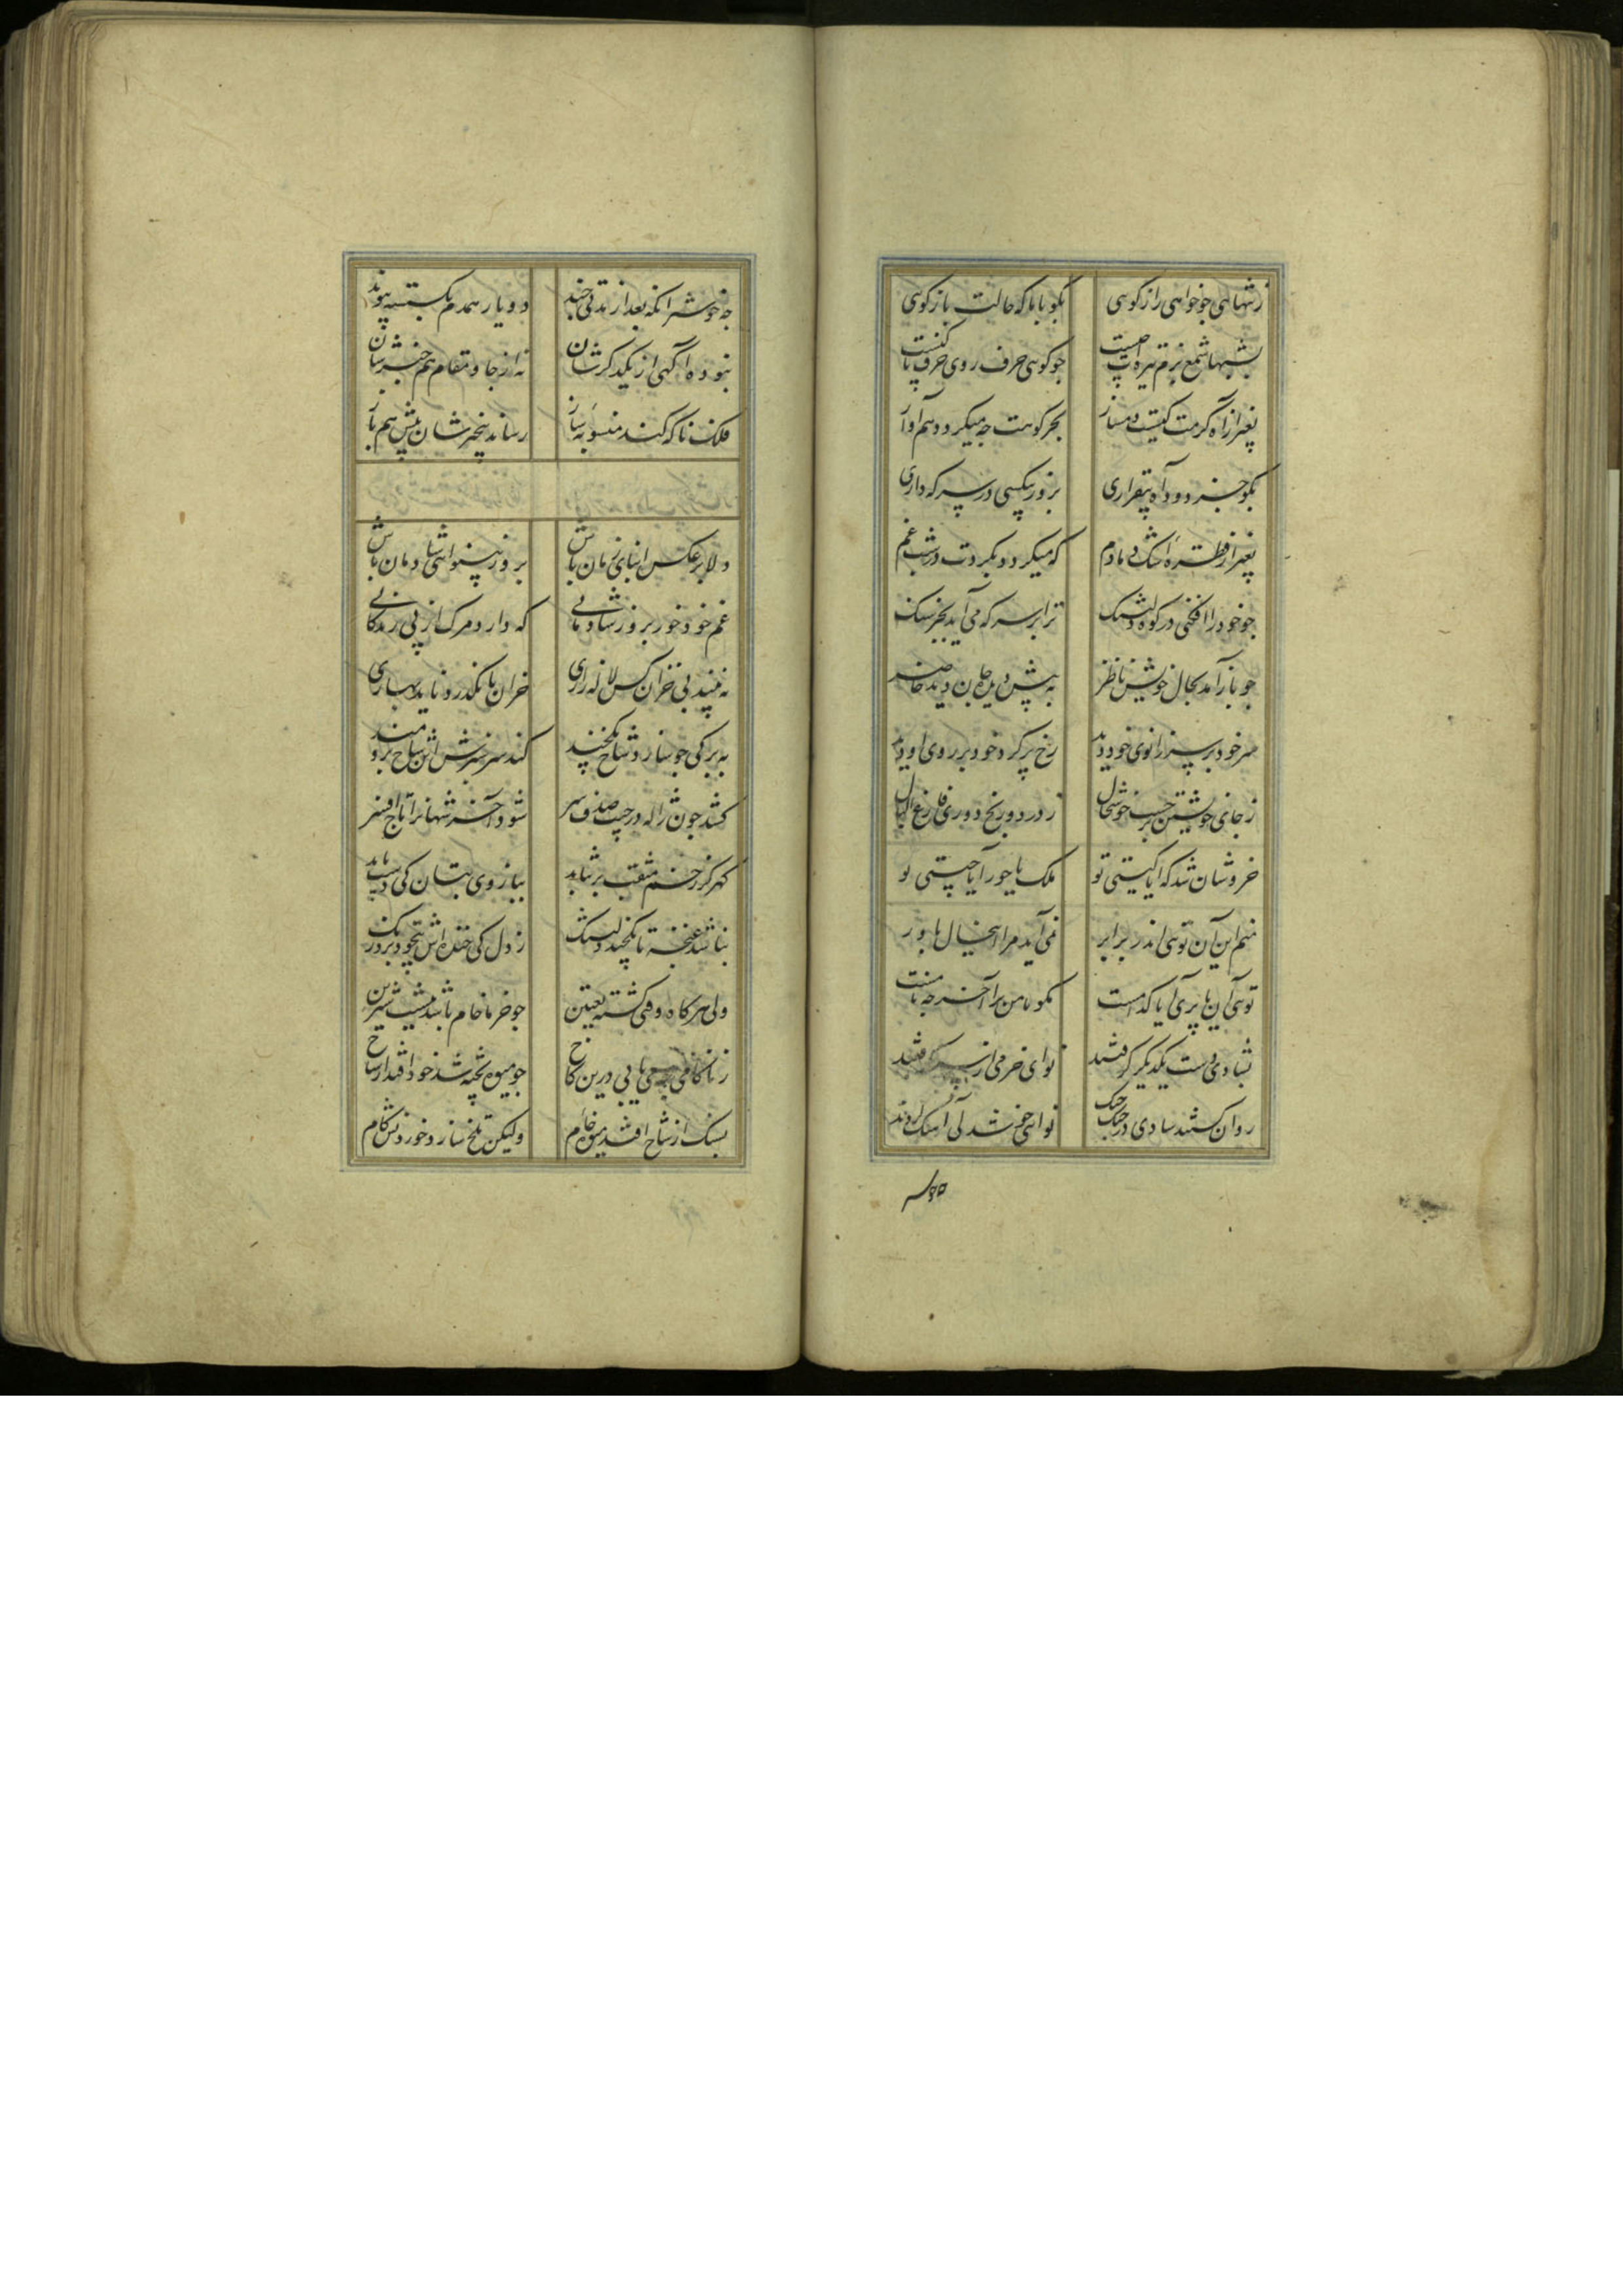 ز تنهایی جو خواهی راز کویی بکو با ما که حالت باز کویی
بشبها شمع بزم تیره‌ات جیست جو کویی حرف روی حرف با کیست
بغیر از آه کرمت کیست دمساز بجز کوهت که میکردد هم آواز
بکو جز دود آه بیقراری بروز بیکسی در سر که داری
بغیر از قطره اشک دمادم که میکردد بکردت در شب غم
جو خود را افکنی در کوه دلتنک ترا بر سر که می آید بجز سنک
جو باز آمد بحال خویش ناظر به پیش دیده جانان دید حاضر
سر خود بر سر زانوی خود دید رخ پر کرد خود بر روی او دید
ز جای خویشتن برجست خوشحال ز درد و رنج دوری فارغ البال
خروشان شد که آیا کیستی تو ملک یا حور آیا چیستی تو
منم این آن تویی اندر برابر نمی آید مرا این حال باور
تویی این یا پری آیا کدامست بکو با من ترا آخر چه نامست
بشادی دست یکدیکر کرفتند نوای خرمی از سر کرفتند
روان کشتند شادی در جنک نوای خوشدلی آهنک
جه خوشتر زانکه بعد از مدتی جند دو یار همدم بکسسته پیوند
نبوده آکهی از یکدکرشان نه از جا و مقام هم خبرشان
فلک ناکه کند منسوبه ساز رساند بیخبرشان پیش هم باز
دلا بر عکس ابنای زمان باش بروز بینوایی شادمان باش
غم خود خور بروز شادمانی که دارد مرک از پی زندکانی
نه بیند بی خزان کس لاله زاری خزان تا نکذرد ناید بهاری
به برکی جو سازد شاخ یکچند کند سرسبزش این شاخ برومند
کشد جون ژاله در جیب صدف سر شود آخر شهانرا تاج افسر
کهر کز زخم مثقب برنتابد ببازوی بتان کی دست یابد
نباشد غنچه تا یکچند دلتنک ز دل کی خنده‌اش بیخود برد رنک
ولی هر کاه وقتی کشته تعیین جو خرما خام باشد نیست شیرین
ز ناکامی یابی درین کاخ جو میوه پخته شد خود افتد از شاخ
بسنک از شاخ افتد میوه خام ولیکن تلخ سازد خوردنش کام